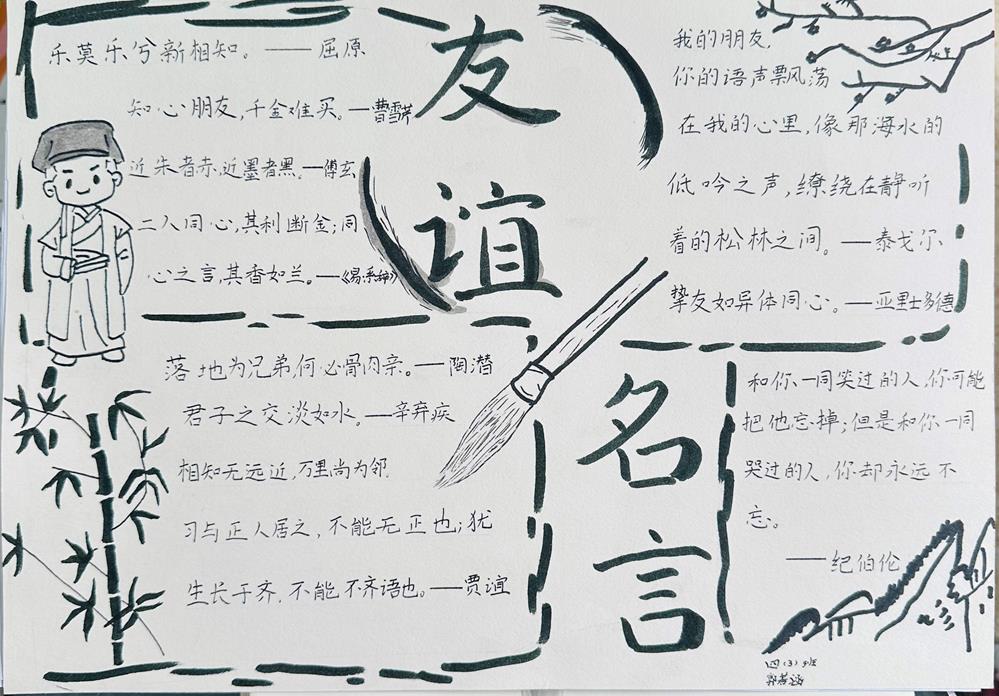 友谊
名言
乐莫乐兮新相知。——屈原
知心朋友,千金难买。—曹雪芹
近朱者赤,近墨者黑。—傅玄
二人同心,其利断金;同
心之言,其香如兰。—《易·系辞》
落地为兄弟何必骨肉亲。—陶潜
君子之交淡如水。—辛弃疾
相知无远近,万里尚为邻.
习与正人居之,不能无正也;犹
生长于齐.不能不齐语也。—贾谊
我的朋友,
你的语声飘荡
在我的心里,像那海水的
低吟之声,缭绕在静听
着的松林之间。—泰戈尔
挚友如异体同心。—亚里士多德
和你一同笑过的人,你可能
把他忘掉;但是和你一同
哭过的人,你却永远不
忘。
——纪伯伦
四(3)班